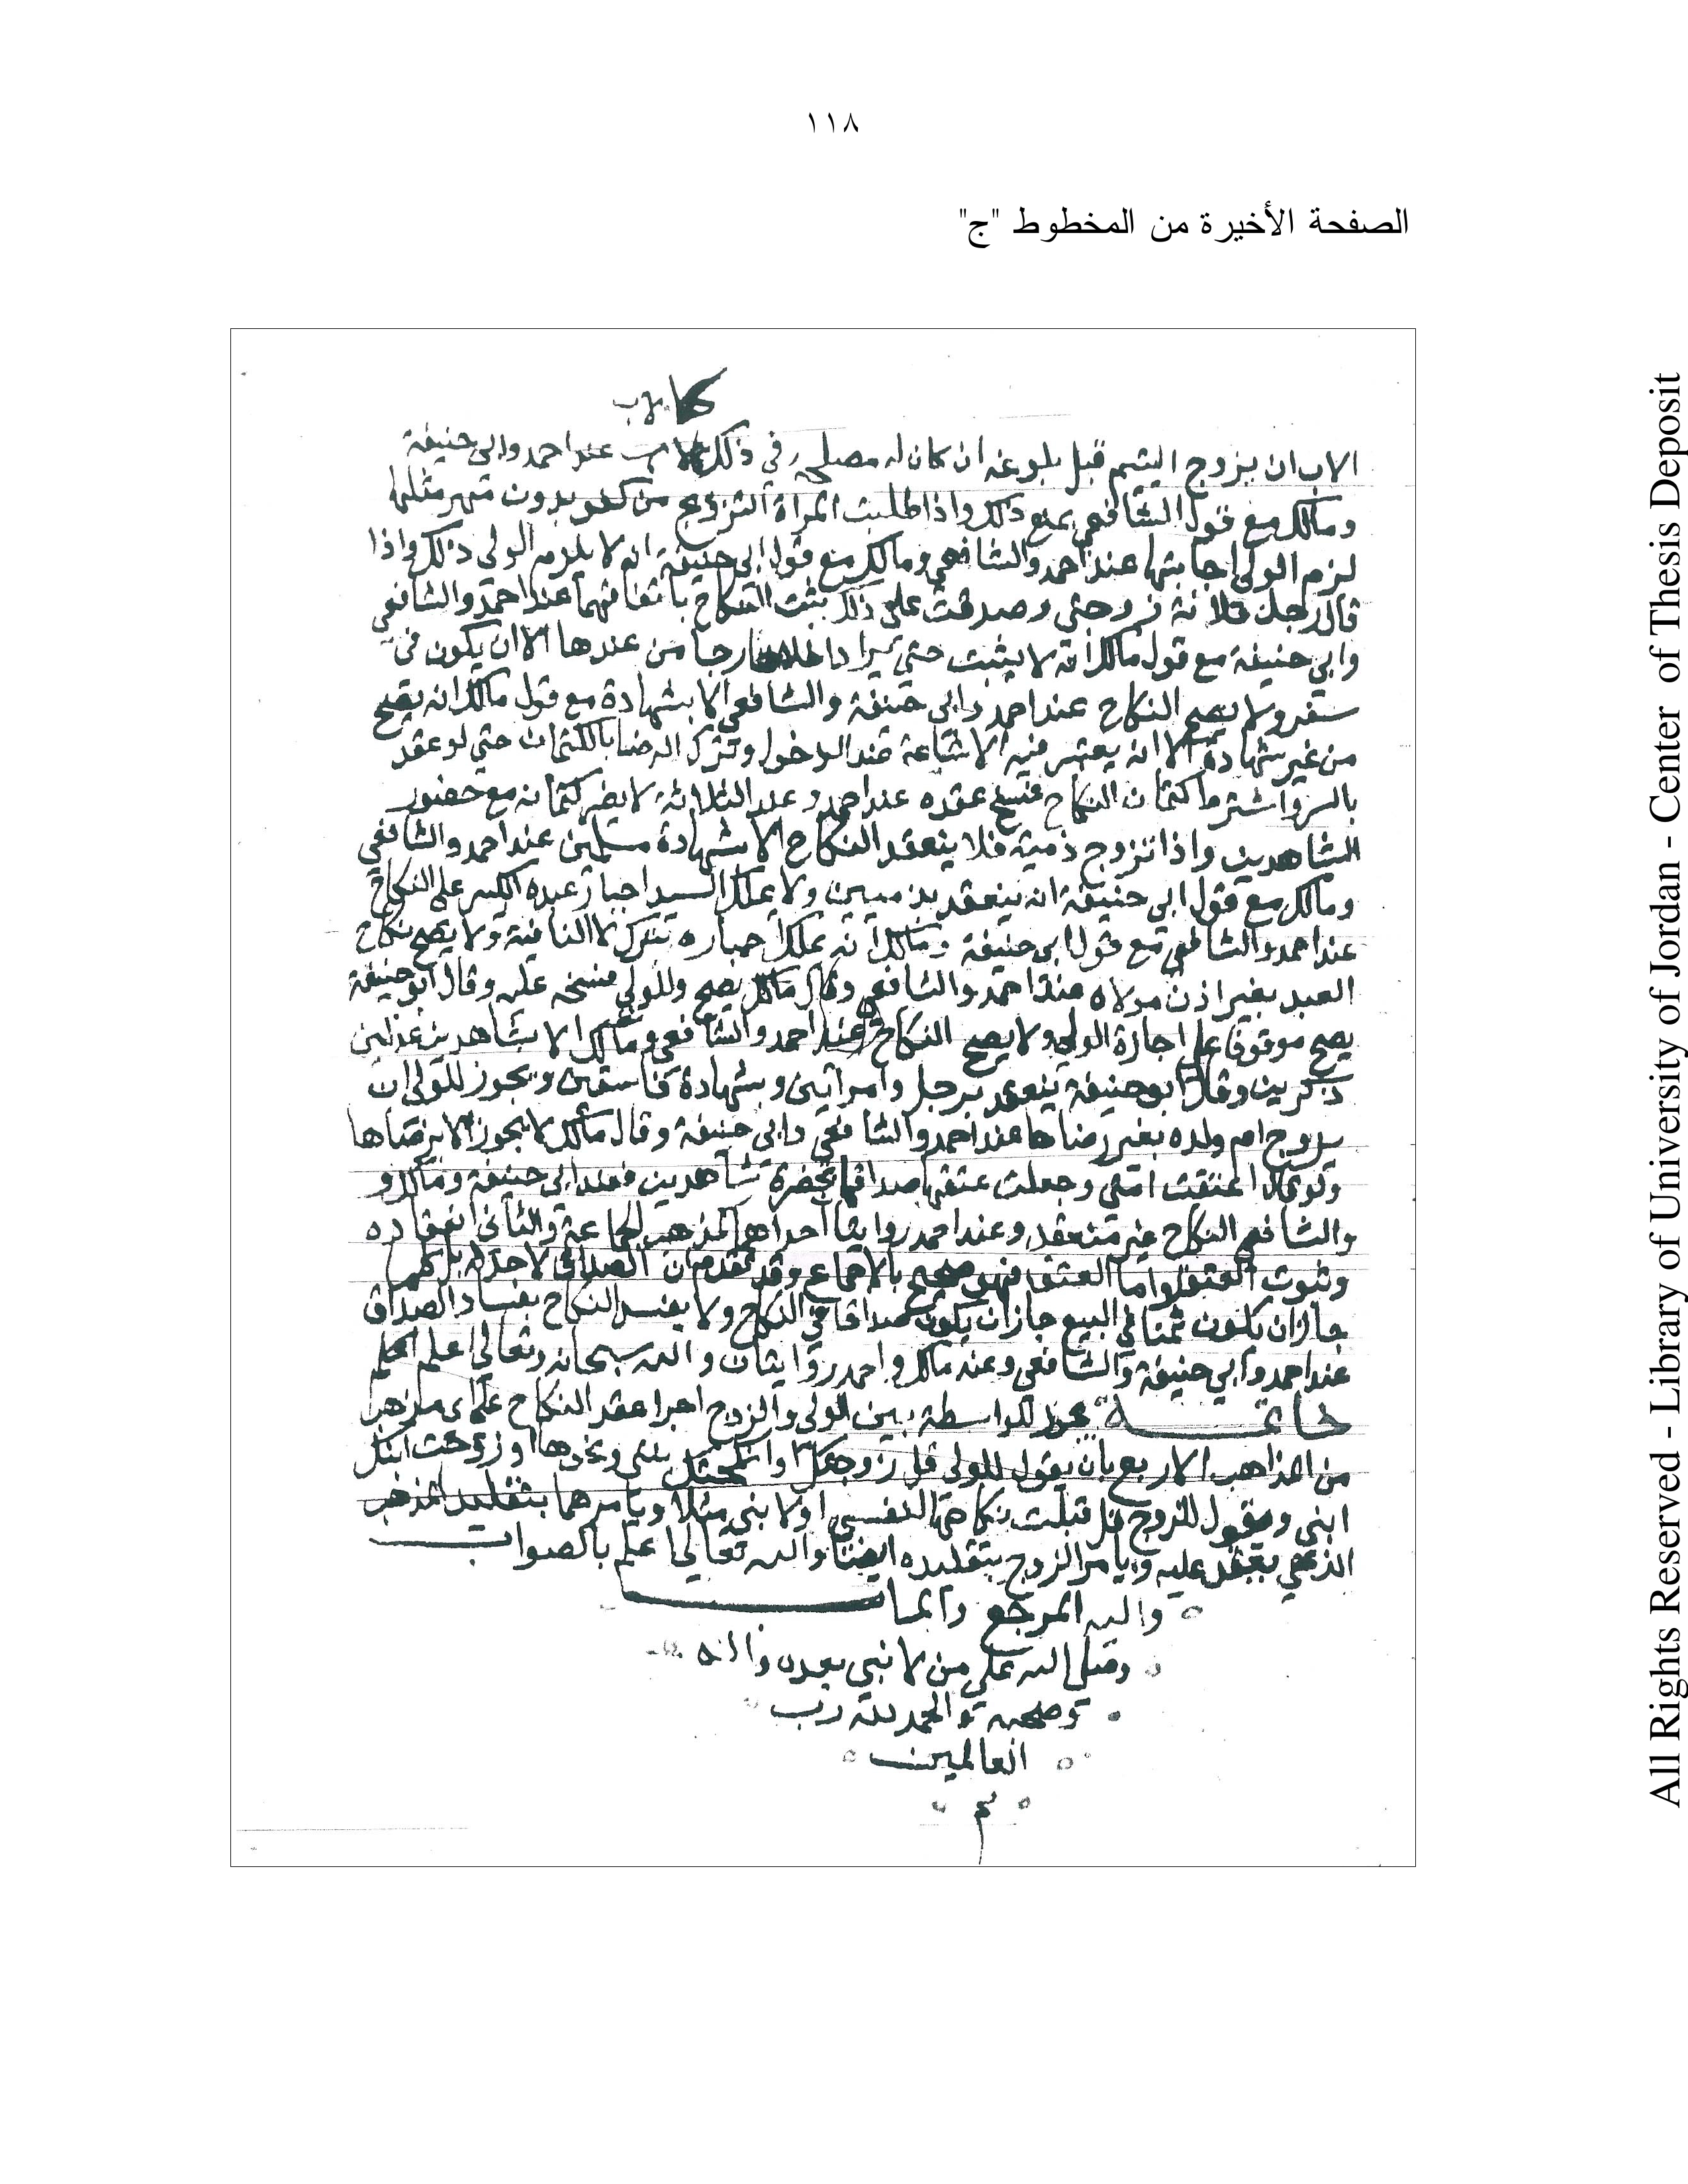 ١١٨
الصفحة الأخيرة من المخطوط "ج"
كالاب
الاب ان يزوج اليتيم قبل بلوغه ان كان له مصلحه في ذلك عند احمد وابي حنيفة
ومالك مع قول الشافعي بمنع ذلك واذا طلبت المراة التزوج من كفو بدون مهر مثلها
لزم الولي اجابتها عند احمد والشافعي ومالك مع قول ابي حنيفة انه لا يلزم الولي ذلك واذا
قال رجل فلانة زوجتي وصدقت على ذلك يثبت النكاح باتفاقهما عند احمد والشافعي
وابي حنيفة مع قول مالك انه لا يثبت حتي يرا داخلا خارجا من عندها الا ان يكون في
سفر ولا يصح النكاح عند احمد وابي حنيفة والشافعي الا بشهادة مع قول مالك انه يصح
من غير شهادة الا انه يعتبر فيه الاشاعة عند الدخول وترك الرضا بالكتمان حتي لو عقد
بالسر واشترط كتمان النكاح فسخ عقده عند احمد وعند الثلاثة لا يضر كتمانه مع حضور
الشاهدين واذا تزوج ذمية فلا ينعقد النكاح الا بشهادة مسلمين عند احمد والشافعي
ومالك مع قول ابي حنيفة انه ينعقد بذميين ولا يملك السيد اجبار عبده الكبير علي النكاح
عند احمد والشافعي مع قول ابي حنيفة ومالك انه يملك اجباره ولا يصح نكاح
العبد بغير اذن مولاه عند احمد والشافعي وقال مالك يصح وللولي فسخه عليه وقال ابو حنيفة
يصح موقوفا علي اجازة الولي ولا يصح النكاح عند احمد والشافعي ومالك الا بشاهدين عدلين
ذكرين وقال ابو حنيفة ينعقد برجل وامراتين وبشهادة فاسقين ويجوز للولي ان
يزوج ام ولده بغير رضاها عند احمد والشافعي وابي حنيفة وقال مالك لا يجوز الا برضاها
ولو قال اعتقت امتي وجعلت عتقها صداقها بحضرة شاهدين فعند ابي حنيفة ومالك و
والشافعي النكاح غير منعقد وعند احمد روايتان احداهما كمذهب الجماعة والثاني انعقاده
وثبوت العتق واما العتق فهو صحيح بالاجماع وقد تقدم ان الصداق لا حد له بل كلما
جاز ان يكون ثمنا في البيع جاز ان يكون صداقا في النكاح ولا يفسد النكاح بفساد الصداق
عند احمد وابي حنيفة والشافعي وعند مالك واحمد روايتان والله سبحانه وتعالي اعلم
خاتمة يجوز للواسطة بين الولي والزوج اجرا عقد النكاح علي اي مذهب
من المذاهب الاربع بان يقول للولي قل زوجتك وانكحتك بنتي ونحوها او زوجت ابنك
ابنتي ويقول للزوج قل قبلت نكاحها لنفسي او لابني مثلا ويامرهما بتقليد المذهب
الذي يعقد عليه ويامر الزوج بتقليده ايضا والله تعالي اعلم بالصواب
واليه المرجع والمآب
وصلي الله علي من لا نبي بعده واله
وصحبه والحمد لله رب
العالمين
م
All Rights Reserved - Library of University of Jordan - Center of Thesis Deposit